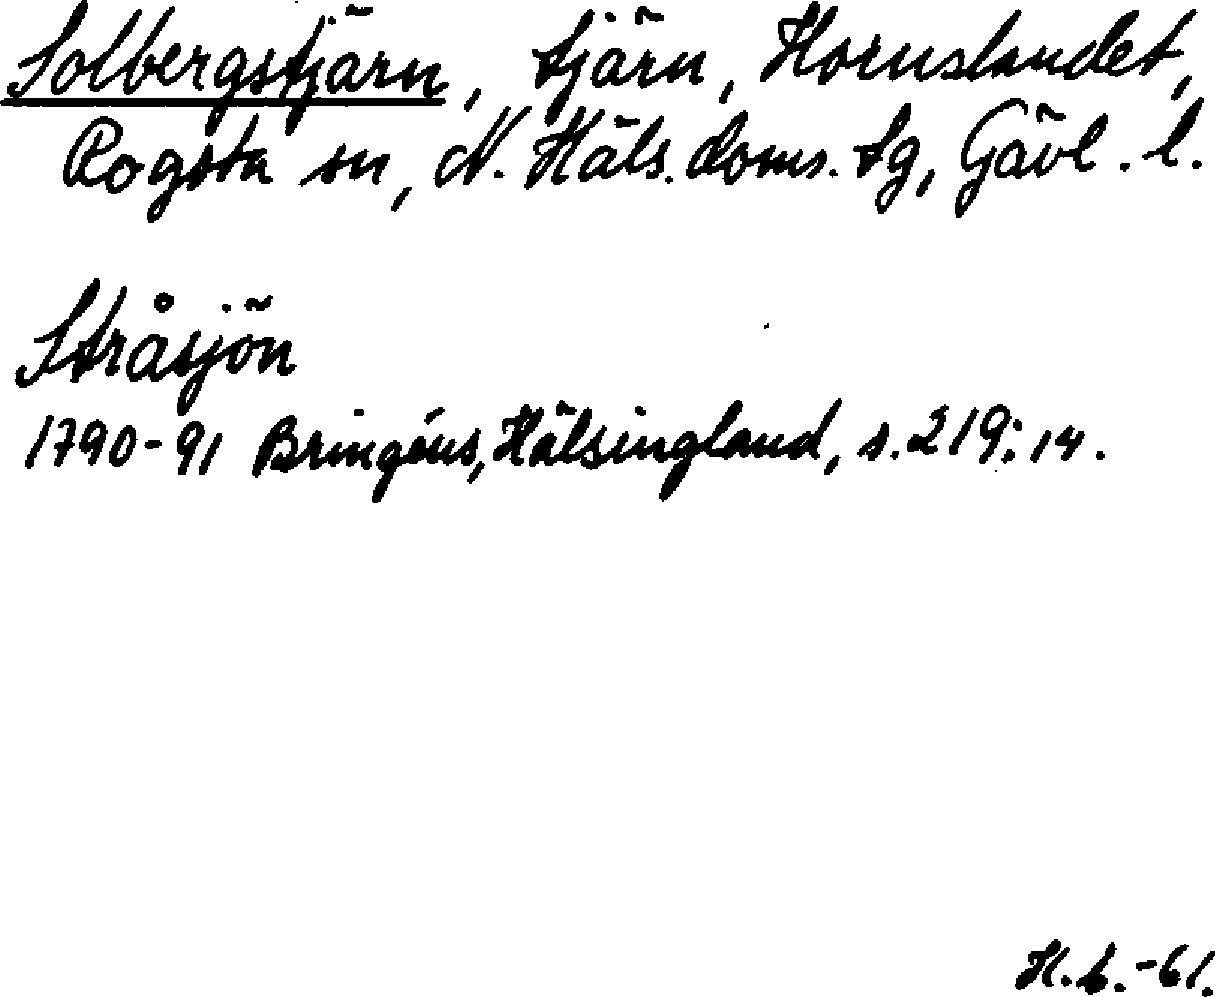 Solbergstjärn, tjärn, Hornslandet,
Rogsta sn, N. Häls. doms. tg, Gävl. l.
Stråsjön
1790-91 Bringéus, Hälsingland, s. 219: 14.
H.b.-61.